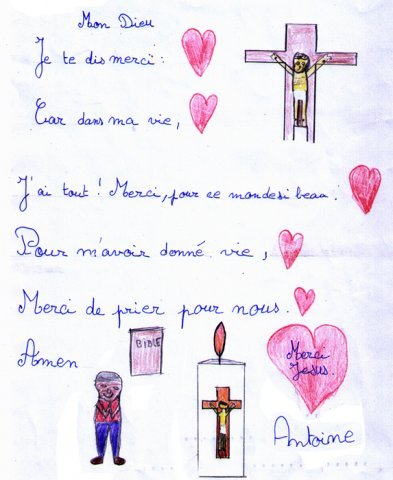 Mon Dieu
Je te dis merci :
Car dans ma vie,
J'ai tout ! Merci, pour ce monde si beau .
Pour m'avoir donné vie,
Merci de prier pour nous.
Amen
BIBLE
Merci
Jesus.
Antoine